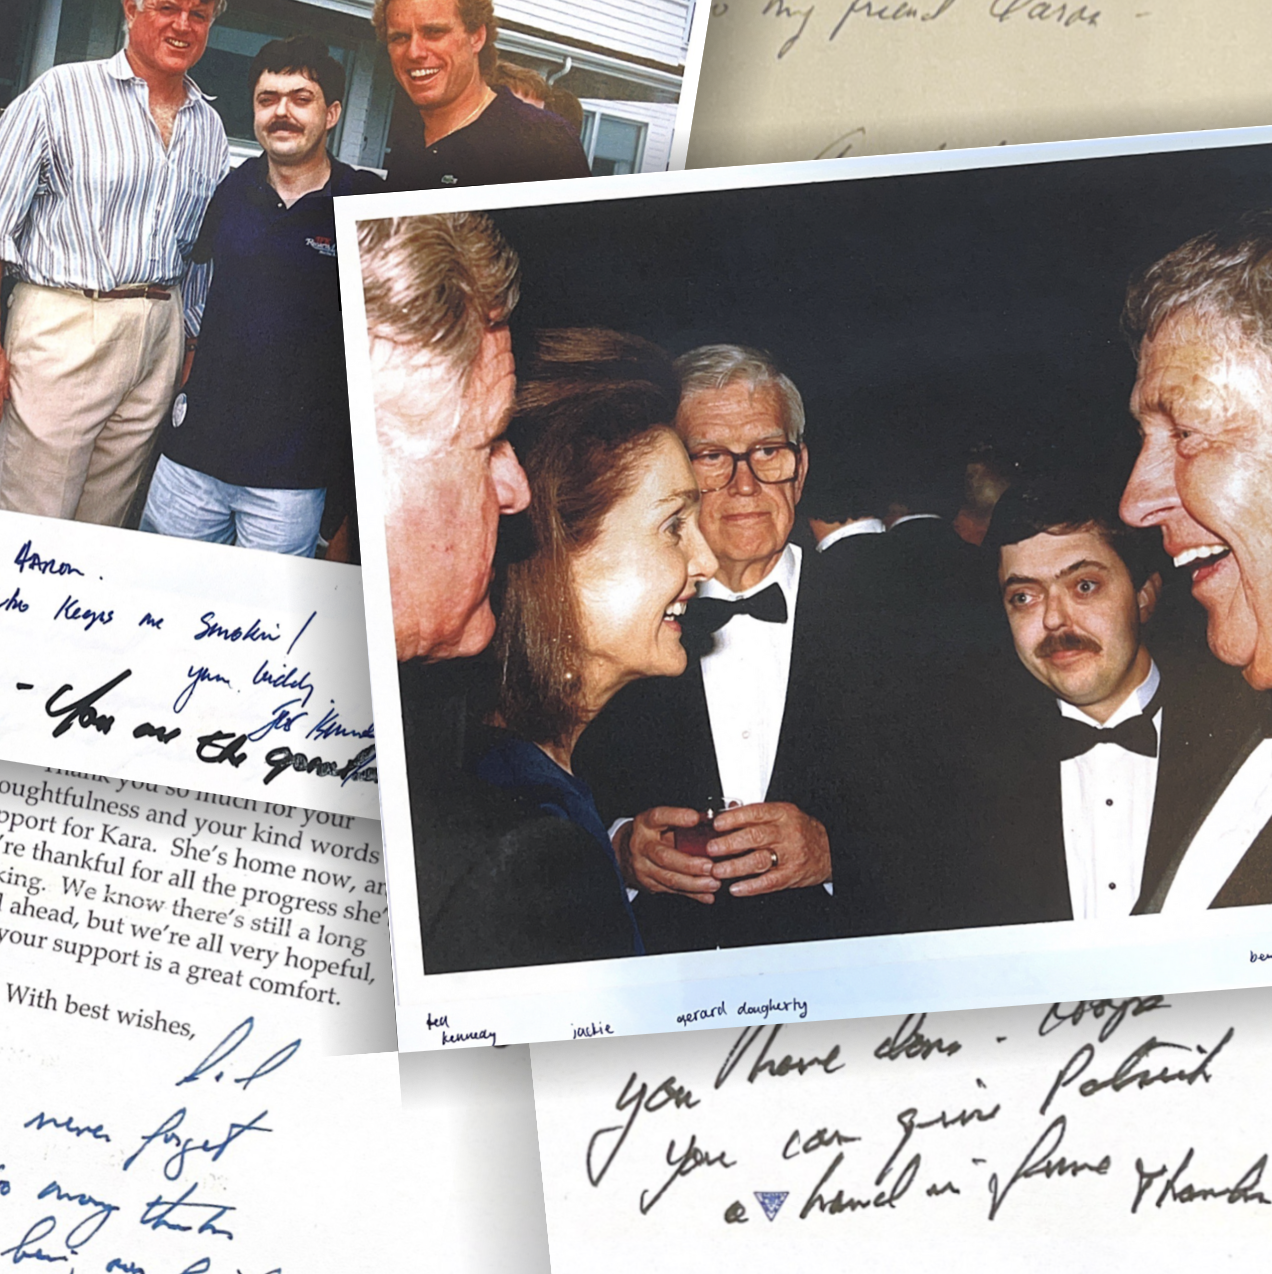 my friend Aaron -
Aaron.
who Keeps me Smokin!
your buddy
- You are the
Thank you so much for your
oughtfulness and your kind words
pport for Kara. She's home now, an
're thankful for all the progress she'
king. We know there's still a long
l ahead, but we're all very hopeful,
your support is a great comfort.
With best wishes,
never forget
many thanks
ted
kennedy
jackie
gerard dougherty
ben
you have done -
you can give Patrick
a hand in June Thanks